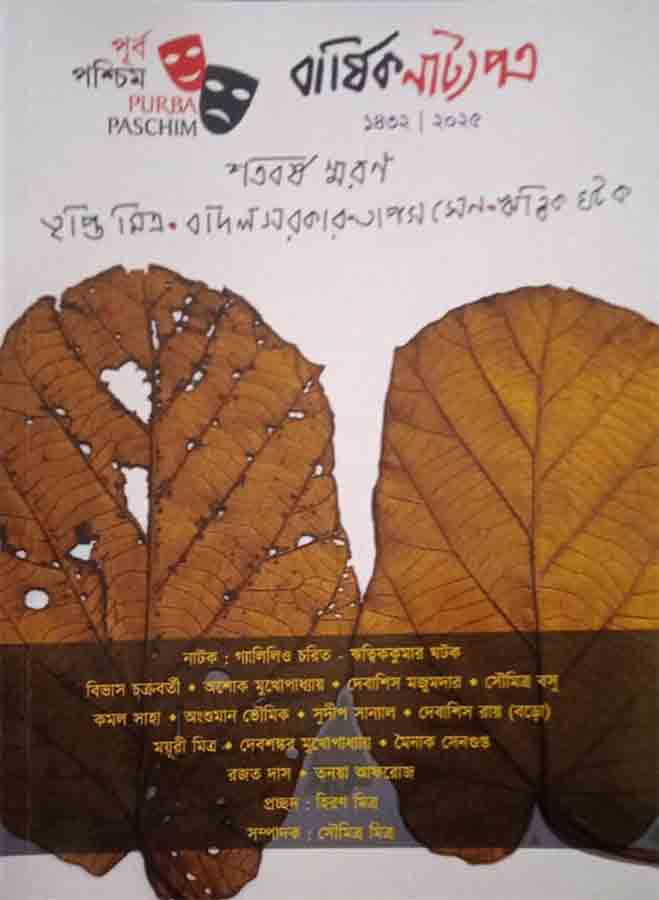 পূর্ব
পশ্চিম
PURBA
PASCHIM
বার্ষিক নাট্যপত্র
১৪৩২ | ২০২৫
শতবর্ষ স্মরণ
তৃপ্তি মিত্র • বাদল সরকার • তাপস সেন • ঋত্বিক ঘটক
নাটক : গ্যালিলিও চরিত - ঋত্বিককুমার ঘটক
বিভাস চক্রবর্তী • অশোক মুখোপাধ্যায় • দেবাশিস মজুমদার • সৌমিত্র বসু
কমল সাহা • অংশুমান ভৌমিক • সুদীপ সান্যাল • দেবাশিস রায় (বড়ো)
ময়ূরী মিত্র • দেবশঙ্কর মুখোপাধ্যায় • মৈনাক সেনগুপ্ত
রজত দাস • তনয়া আফরোজ
প্রচ্ছদ : হিরণ মিত্র
সম্পাদক : সৌমিত্র মিত্র